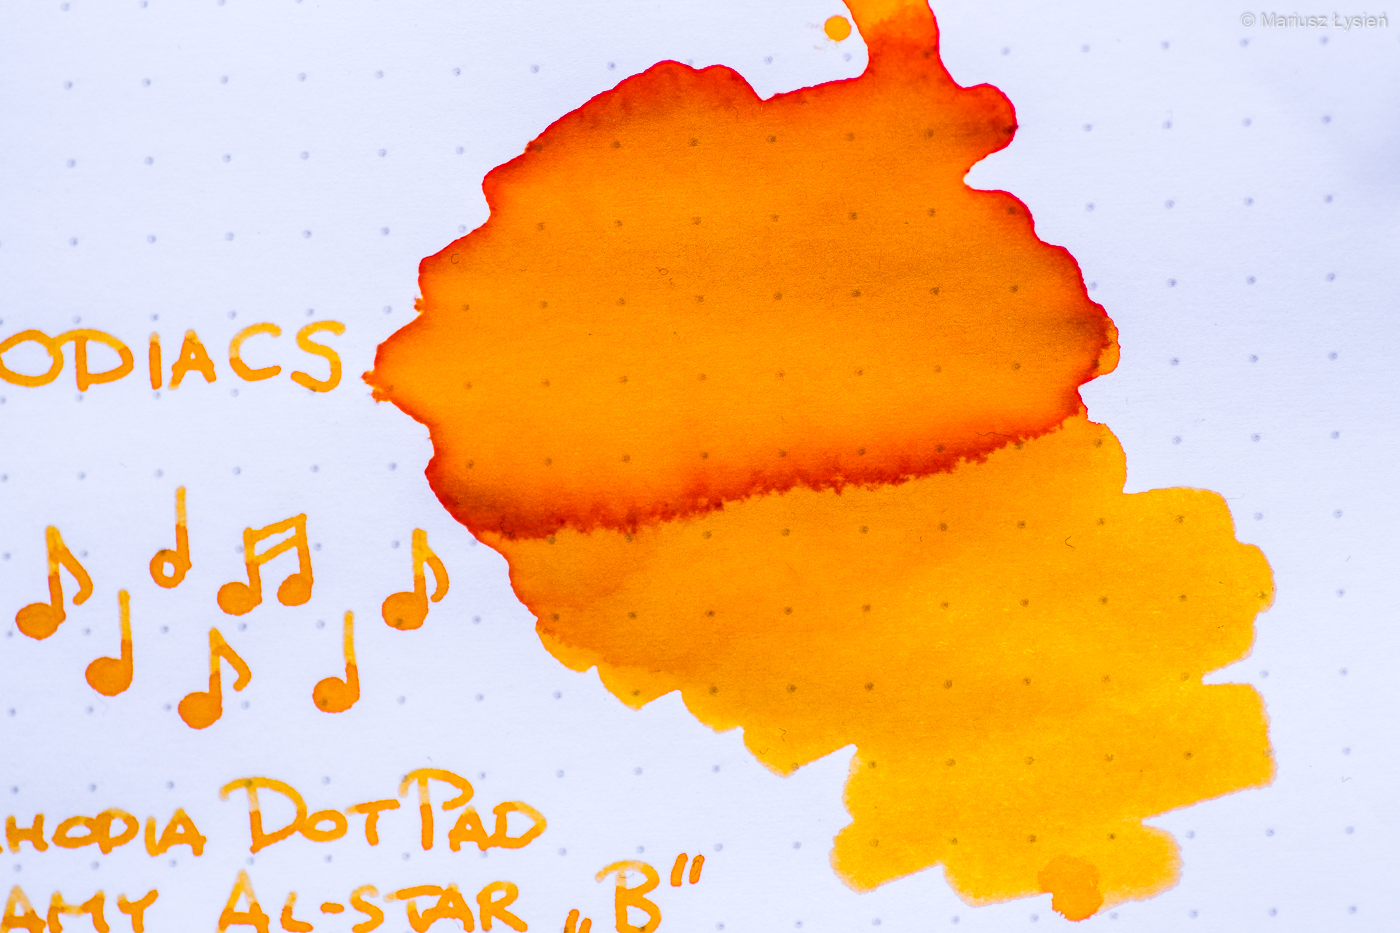 © Mariusz Łysień
ODIACS
HODIA DOT PAD
AMY AL-STAR „B”